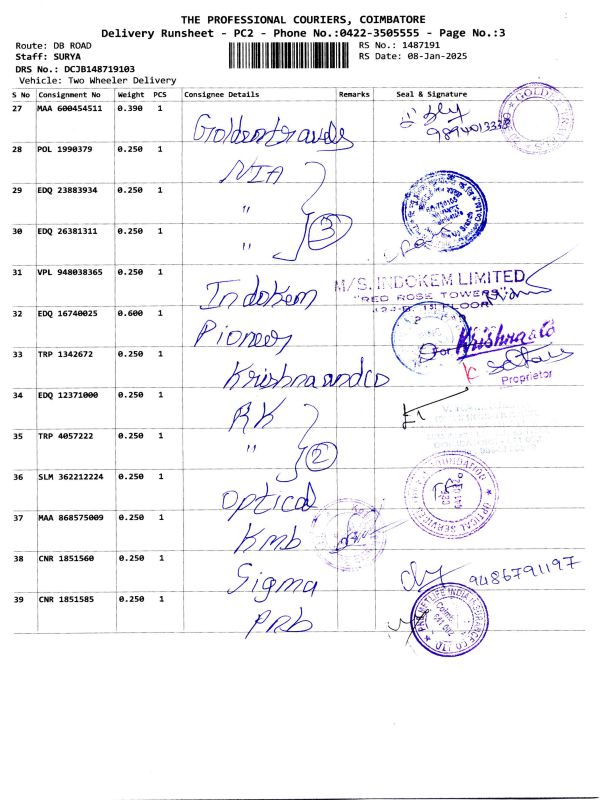 THE PROFESSIONAL COURIERS, COIMBATORE
Delivery Runsheet - PC2 - Phone No.:0422-3505555 - Page No.:3
Route: DB ROAD
Staff: SURYA
DRS No.: DCJB148719103
Vehicle: Two Wheeler Delivery
RS No.: 1487191
RS Date: 08-Jan-2025
S No Consignment No Weight PCS Consignee Details Remarks Seal & Signature
27 MAA 600454511 0.390 1 Goldentravels
9894013333
28 POL 1990379 0.250 1 NIA
29 EDQ 23883934 0.250 1 "
30 EDQ 26381311 0.250 1 " 3
31 VPL 948038365 0.250 1 Indokem
M/S. INDOKEM LIMITED
"RED ROSE TOWERS"
FLOOR
32 EDQ 16740025 0.600 1 Pioneer
33 TRP 1342672 0.250 1 Krishna and co
For Krishna & Co
Proprietor
34 EDQ 12371000 0.250 1 RK
35 TRP 4057222 0.250 1 " 2
36 SLM 362212224 0.250 1 Optical
37 MAA 868575009 0.250 1 Kmb
38 CNR 1851560 0.250 1 Sigma
9486791197
39 CNR 1851585 0.250 1 PRb